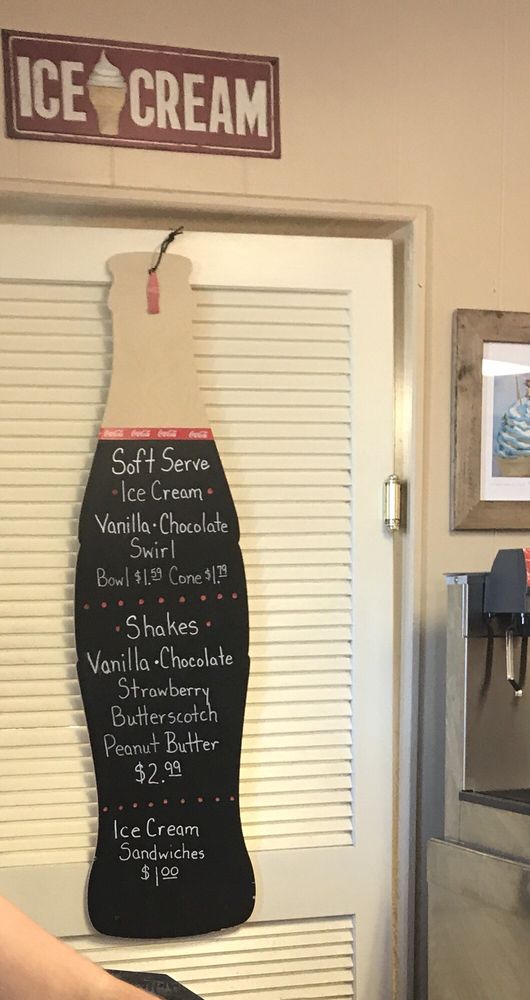 ICE CREAM
Coca-Cola Coca-Cola Coca-Cola Coca-Cola
Soft Serve
• Ice Cream •
Vanilla • Chocolate
Swirl
Bowl $1.59 Cone $1.79
• Shakes •
Vanilla • Chocolate
Strawberry
Butterscotch
Peanut Butter
$2.99
Ice Cream
Sandwiches
$1.00